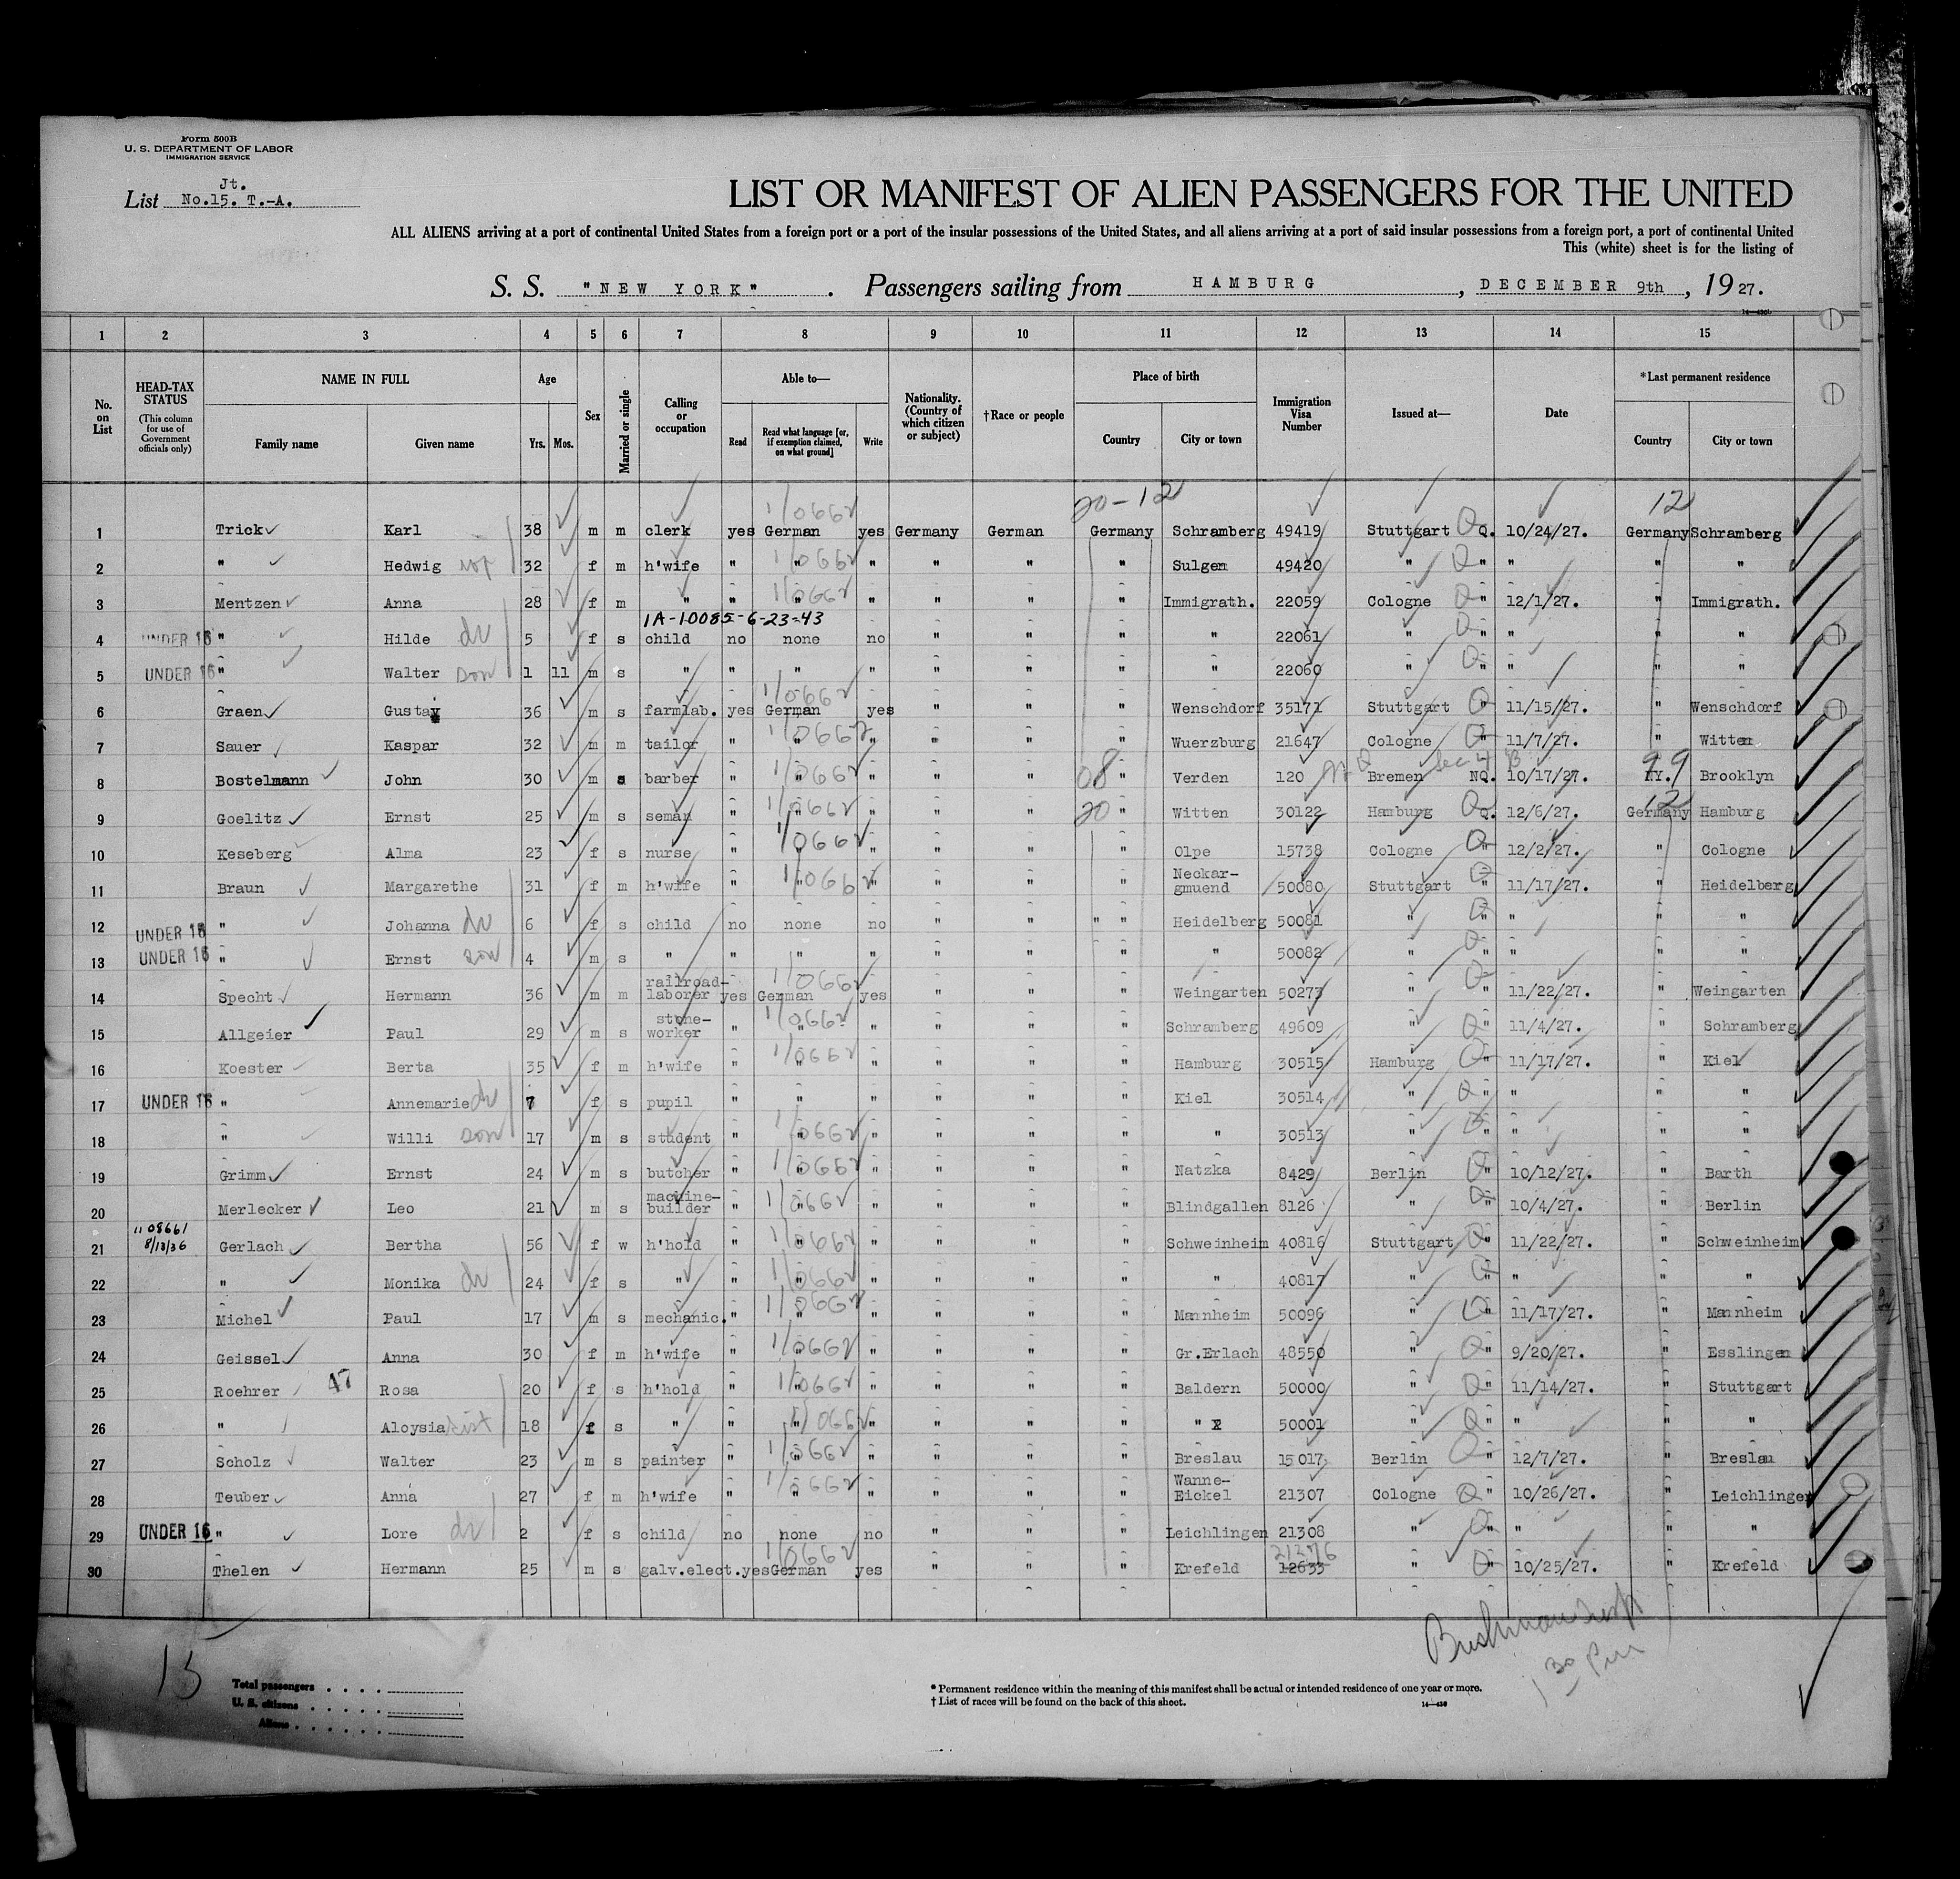 Form 500B
U. S. DEPARTMENT OF LABOR
IMMIGRATION SERVICE
Jt.
List No.15. T.-A.
LIST OR MANIFEST OF ALIEN PASSENGERS FOR THE UNITED
ALL ALIENS arriving at a port of continental United States from a foreign port or a port of the insular possessions of the United States, and all aliens arriving at a port of said insular possessions from a foreign port, a port of continental United
This (white) sheet is for the listing of
S. S. "NEW YORK". Passengers sailing from HAMBURG, DECEMBER 9th, 1927.
1 2 3 4 5 6 7 8 9 10 11 12 13 14 15
No. on List
HEAD-TAX STATUS (This column for use of Government officials only)
NAME IN FULL Family name Given name
Age Yrs. Mos.
Sex
Married or single
Calling or occupation
Able to— Read Read what language [or, if exemption claimed, on what ground] Write
Nationality. (Country of which citizen or subject)
†Race or people
Place of birth Country City or town
Immigration Visa Number
Issued at—
Date
*Last permanent residence Country City or town
20-12 12
1 Trick Karl 38 m m clerk yes German yes Germany German Germany Schramberg 49419 Stuttgart Q. 10/24/27. Germany Schramberg
2 " Hedwig 32 f m h'wife " " " " " " Sulgen 49420 " " " " "
3 Mentzen Anna 28 f m " " " " " " " Immigrath. 22059 Cologne " 12/1/27. " Immigrath.
1A-10085-6-23-43
4 UNDER 16 " Hilde 5 f s child no none no " " " " 22061 " " " " "
5 UNDER 16 " Walter son 1 11 m s " " " " " " " " 22060 " " " " "
6 Graen Gustav 36 m s farmlab. yes German yes " " " Wenschdorf 35171 Stuttgart " 11/15/27. " Wenschdorf
7 Sauer Kaspar 32 m m tailor " " " " " " Wuerzburg 21647 Cologne " 11/7/27. " Witten
8 Bostelmann John 30 m s barber " " " " " 08 " Verden 120 Bremen NQ. 10/17/27. NY. 99 Brooklyn
9 Goelitz Ernst 25 m s seman " " " " " 20 " Witten 30122 Hamburg Q. 12/6/27. Germany 12 Hamburg
10 Keseberg Alma 23 f s nurse " " " " " " Olpe 15738 Cologne " 12/2/27. " Cologne
11 Braun Margarethe 31 f m h'wife " " " " " " Neckar-gmuend 50080 Stuttgart " 11/17/27. " Heidelberg
12 UNDER 16 " Johanna 6 f s child no none no " " " " Heidelberg 50081 " " " " "
13 UNDER 16 " Ernst son 4 m s " " " " " " " " 50082 " " " " "
14 Specht Hermann 36 m m railroad-laborer yes German yes " " " Weingarten 50273 " " 11/22/27. " Weingarten
15 Allgeier Paul 29 m s stone-worker " " " " " " Schramberg 49609 " " 11/4/27. " Schramberg
16 Koester Berta 35 f m h'wife " " " " " " Hamburg 30515 Hamburg " 11/17/27. " Kiel
17 UNDER 16 " Annemarie 7 f s pupil " " " " " " Kiel 30514 " " " " "
18 " Willi son 17 m s student " " " " " " " 30513 " " " " "
19 Grimm Ernst 24 m s butcher " " " " " " Natzka 8429 Berlin " 10/12/27. " Barth
20 Merlecker Leo 21 m s machine-builder " " " " " " Blindgallen 8126 " " 10/4/27. " Berlin
1108661
8/13/36
21 Gerlach Bertha 56 f w h'hold " " " " " " Schweinheim 40816 Stuttgart " 11/22/27. " Schweinheim
22 " Monika 24 f s " " " " " " " " 40817 " " " " "
23 Michel Paul 17 m s mechanic. " " " " " " Mannheim 50096 " " 11/17/27. " Mannheim
24 Geissel Anna 30 f m h'wife " " " " " " Gr.Erlach 48550 " " 9/20/27. " Esslingen
25 Roehrer 47 Rosa 20 f s h'hold " " " " " " Baldern 50000 " " 11/14/27. " Stuttgart
26 " Aloysia sist 18 f s " " " " " " " " 50001 " " " " "
27 Scholz Walter 23 m s painter " " " " " " Breslau 15017 Berlin " 12/7/27. " Breslau
28 Teuber Anna 27 f m h'wife " " " " " " Wanne-Eickel 21307 Cologne " 10/26/27. " Leichlingen
29 UNDER 16 " Lore 2 f s child no none no " " " Leichlingen 21308 " " " " "
30 Thelen Hermann 25 m s galv.elect. yes German yes " " " Krefeld 12633 21376 " 10/25/27. " Krefeld
13
Total passengers
U. S. citizens
Aliens
* Permanent residence within the meaning of this manifest shall be actual or intended residence of one year or more.
† List of races will be found on the back of this sheet.